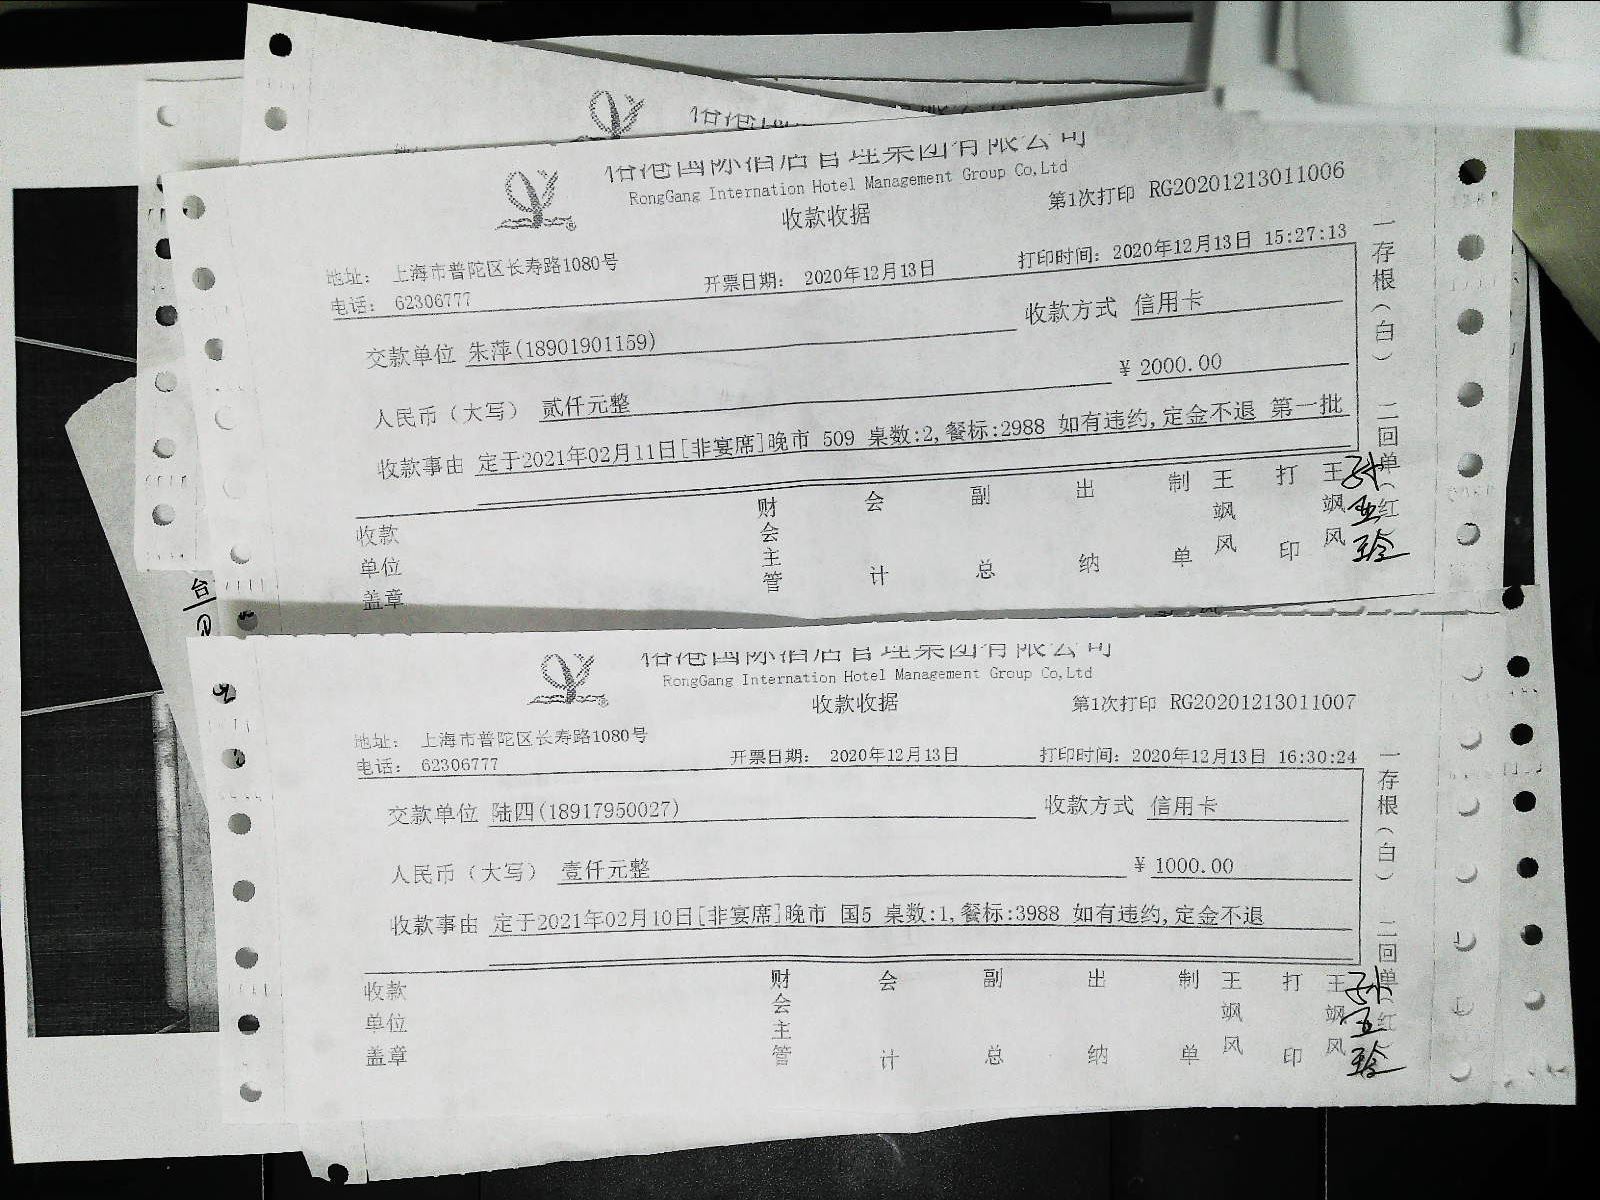 国际酒店管理集团有限公司
RongGang Internation Hotel Management Group Co,Ltd
收款收据
第1次打印 RG20201213011006
地址： 上海市普陀区长寿路1080号
电话： 62306777
开票日期： 2020年12月13日
打印时间：2020年12月13日 15:27:13
交款单位 朱萍(18901901159)
收款方式 信用卡
人民币（大写） 贰仟元整
¥ 2000.00
收款事由 定于2021年02月11日[非宴席]晚市 509 桌数:2,餐标:2988 如有违约,定金不退 第一批
收款单位盖章
财会主管
会计
副总
出纳
制单
王飒风
打印
王飒风
一存根（白） 二回单（红
国际酒店管理集团有限公司
RongGang Internation Hotel Management Group Co,Ltd
收款收据
第1次打印 RG20201213011007
地址： 上海市普陀区长寿路1080号
电话： 62306777
开票日期： 2020年12月13日
打印时间：2020年12月13日 16:30:24
交款单位 陆四(18917950027)
收款方式 信用卡
人民币（大写） 壹仟元整
¥ 1000.00
收款事由 定于2021年02月10日[非宴席]晚市 国5 桌数:1,餐标:3988 如有违约,定金不退
收款单位盖章
财会主管
会计
副总
出纳
制单
王飒风
打印
王飒风
一存根（白） 二回单（红